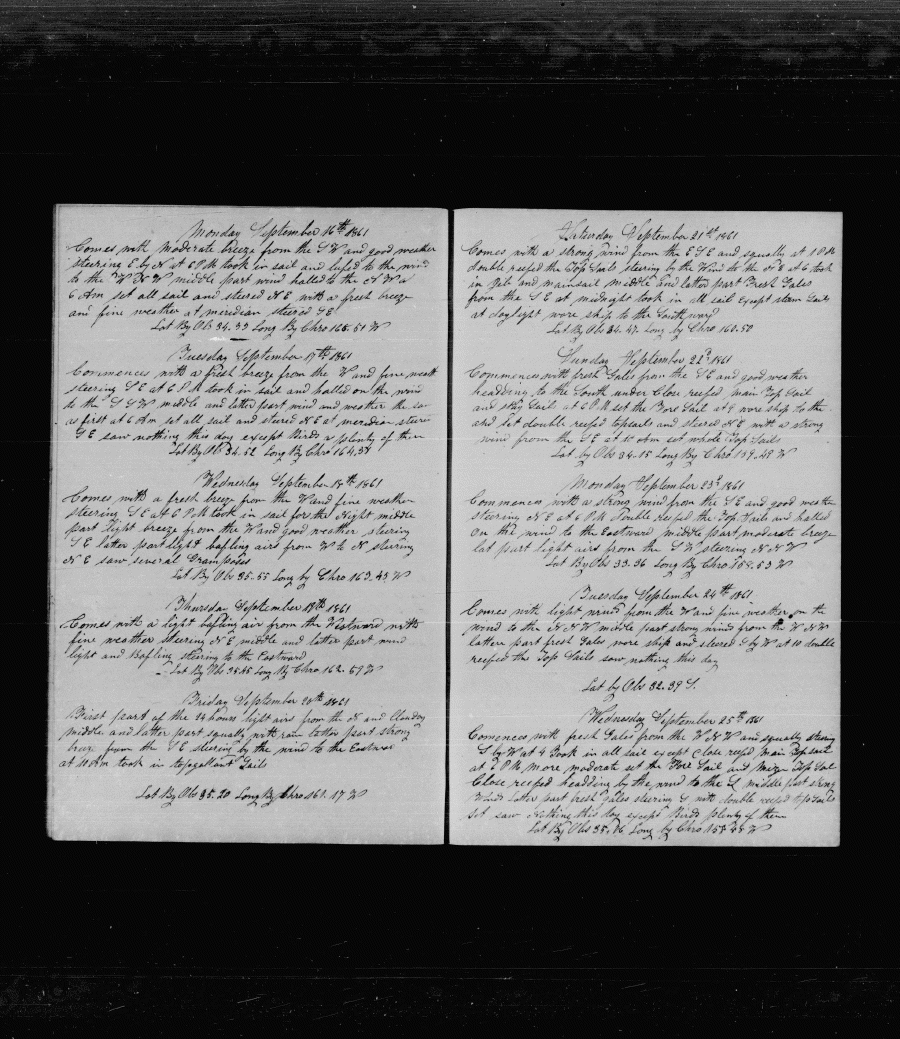 Monday September 16th 1861
Comes with moderate breeze from the S W and good weather
steering E by N at 6 P.M. took in sail and lufed to the wind
to the W N W middle part wind halled to the N W a
6 Am set all sail and steered N E with a fresh breeze
and fine weather at meredian steered S E
Lat By Ob 34.39 Long By Chro 165.51 W
Tuesday September 17th 1861
Commences with a fresh breeze from the W and fine weath
steering S E at 6 P M took in sail and halled on the wind
to the S S W middle and latter part wind and weather the sa
as first at 6 Am set all sail and steered N E at meredian steered
S E saw nothing this day except Birds a plenty of them
Lat By Obs 34.52 Long By Chro 164.31
Wednesday September 18th 1861
Comes with a fresh breeze from the W and fine weather
steering S E at 6 P M took in sail for the Night middle
part light breeze from the W and good weather steering
S E latter part light bafling airs from W to N stering
N E saw several Grampuses
Lat By Obs 35.55 Long by Chro 163.43 W
Thursday September 19th 1861
Comes with a light bafling air from the Westward with
fine weather steering N E middle and latter part wind
light and Bafling steering to the Eastward
Lat By Obs 35.45 Long By Chro 162.59 W
Friday September 20th 1861
First part of the 24 hours light airs from the N and Cloudy
middle and latter part squally with rain latter part strong
breze from the S E steering by the wind to the Eastward
at 11 Am took in topgallant Sails
Lat By Obs 35.20 Long By Chro 161.17 W
Saturday September 21st 1861
Comes with a strong wind from the E S E and squally at 1 P.M.
double reefed the Top Sails steering by the Wind to the N E at 6 took
in Jib and mainsail middle and latter part Fresh Gales
from the S E at midnight took in all sail Except storm Sails
at daylight wore ship to the South ward
Lat By Obs 34.47 Long by Chro 160.50
Sunday September 22d 1861
Commences with fresh Gales from the S E and good weather
headding to the South under Close reefed main Top Sail
and stay Sails at 6 P M set the Fore Sail at 9 wore ship to the
and set double reefed topsails and steered N E with a strong
wind from the S E at 10 Am set whole Top Sails
Lat by Obs 34.15 Long By Chro 159.48 W
Monday September 23d 1861
Commences with a strong wind from the S E and good weather
steering N E at 6 P M Double reefed the Top Sails and halled
On the wind to the Eastward middle part moderate breeze
lat part light airs from the S W steering N N W
Lat By Obs 33.36 Long By Chro 158.53 W
Tuesday September 24th 1861
Comes with light wind from the W and fine weather on the
wind to the N N W middle part strong winds from the W N W
latter part fresh Gales wore ship and steered S by W at 10 double
reefed the Top Sails saw nothing this day
Lat by Obs 32.39 S.
Wednesday September 25th 1861
Comences with fresh Gales from the W N W and squally steering
S by W at 4 Took in all sail except Close reefd Main Top sail
at 8 P M more moderate set the Fore Sail and Mizen Top Sail
Close reefed headding by the wind to the S middle part strong
Winds latter part fresh gales steering S with double reefed top Sails
set saw Nothing this day except Birds plenty of them
Lat By Obs 35.06 Long by Chro 158.48 W